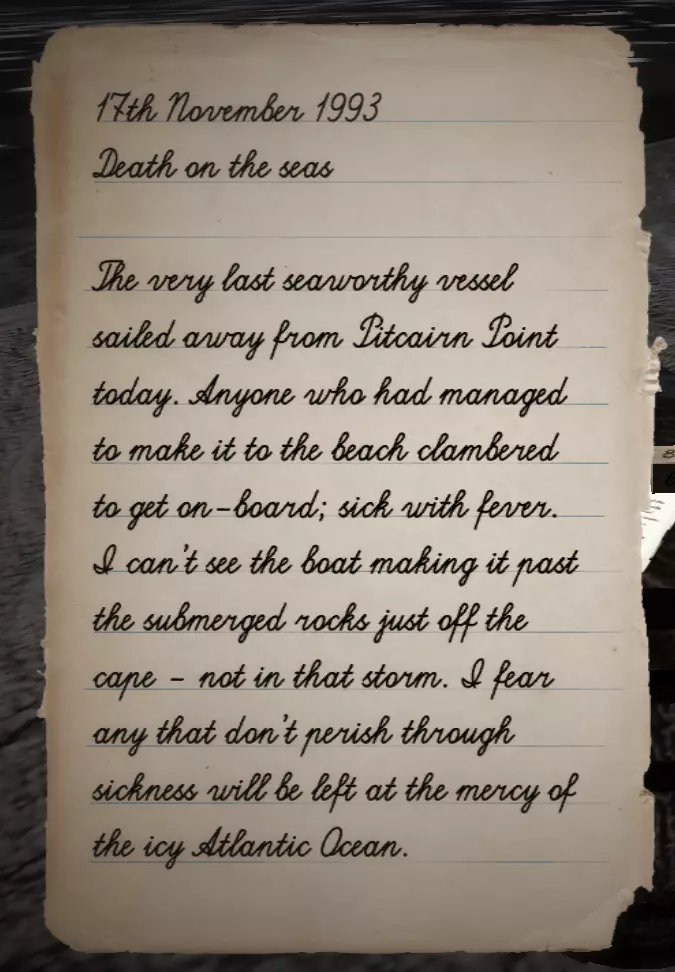 17th November 1993
Death on the seas
The very last seaworthy vessel
sailed away from Pitcairn Point
today. Anyone who had managed
to make it to the beach clambered
to get on-board; sick with fever.
I can't see the boat making it past
the submerged rocks just off the
cape - not in that storm. I fear
any that don't perish through
sickness will be left at the mercy of
the icy Atlantic Ocean.